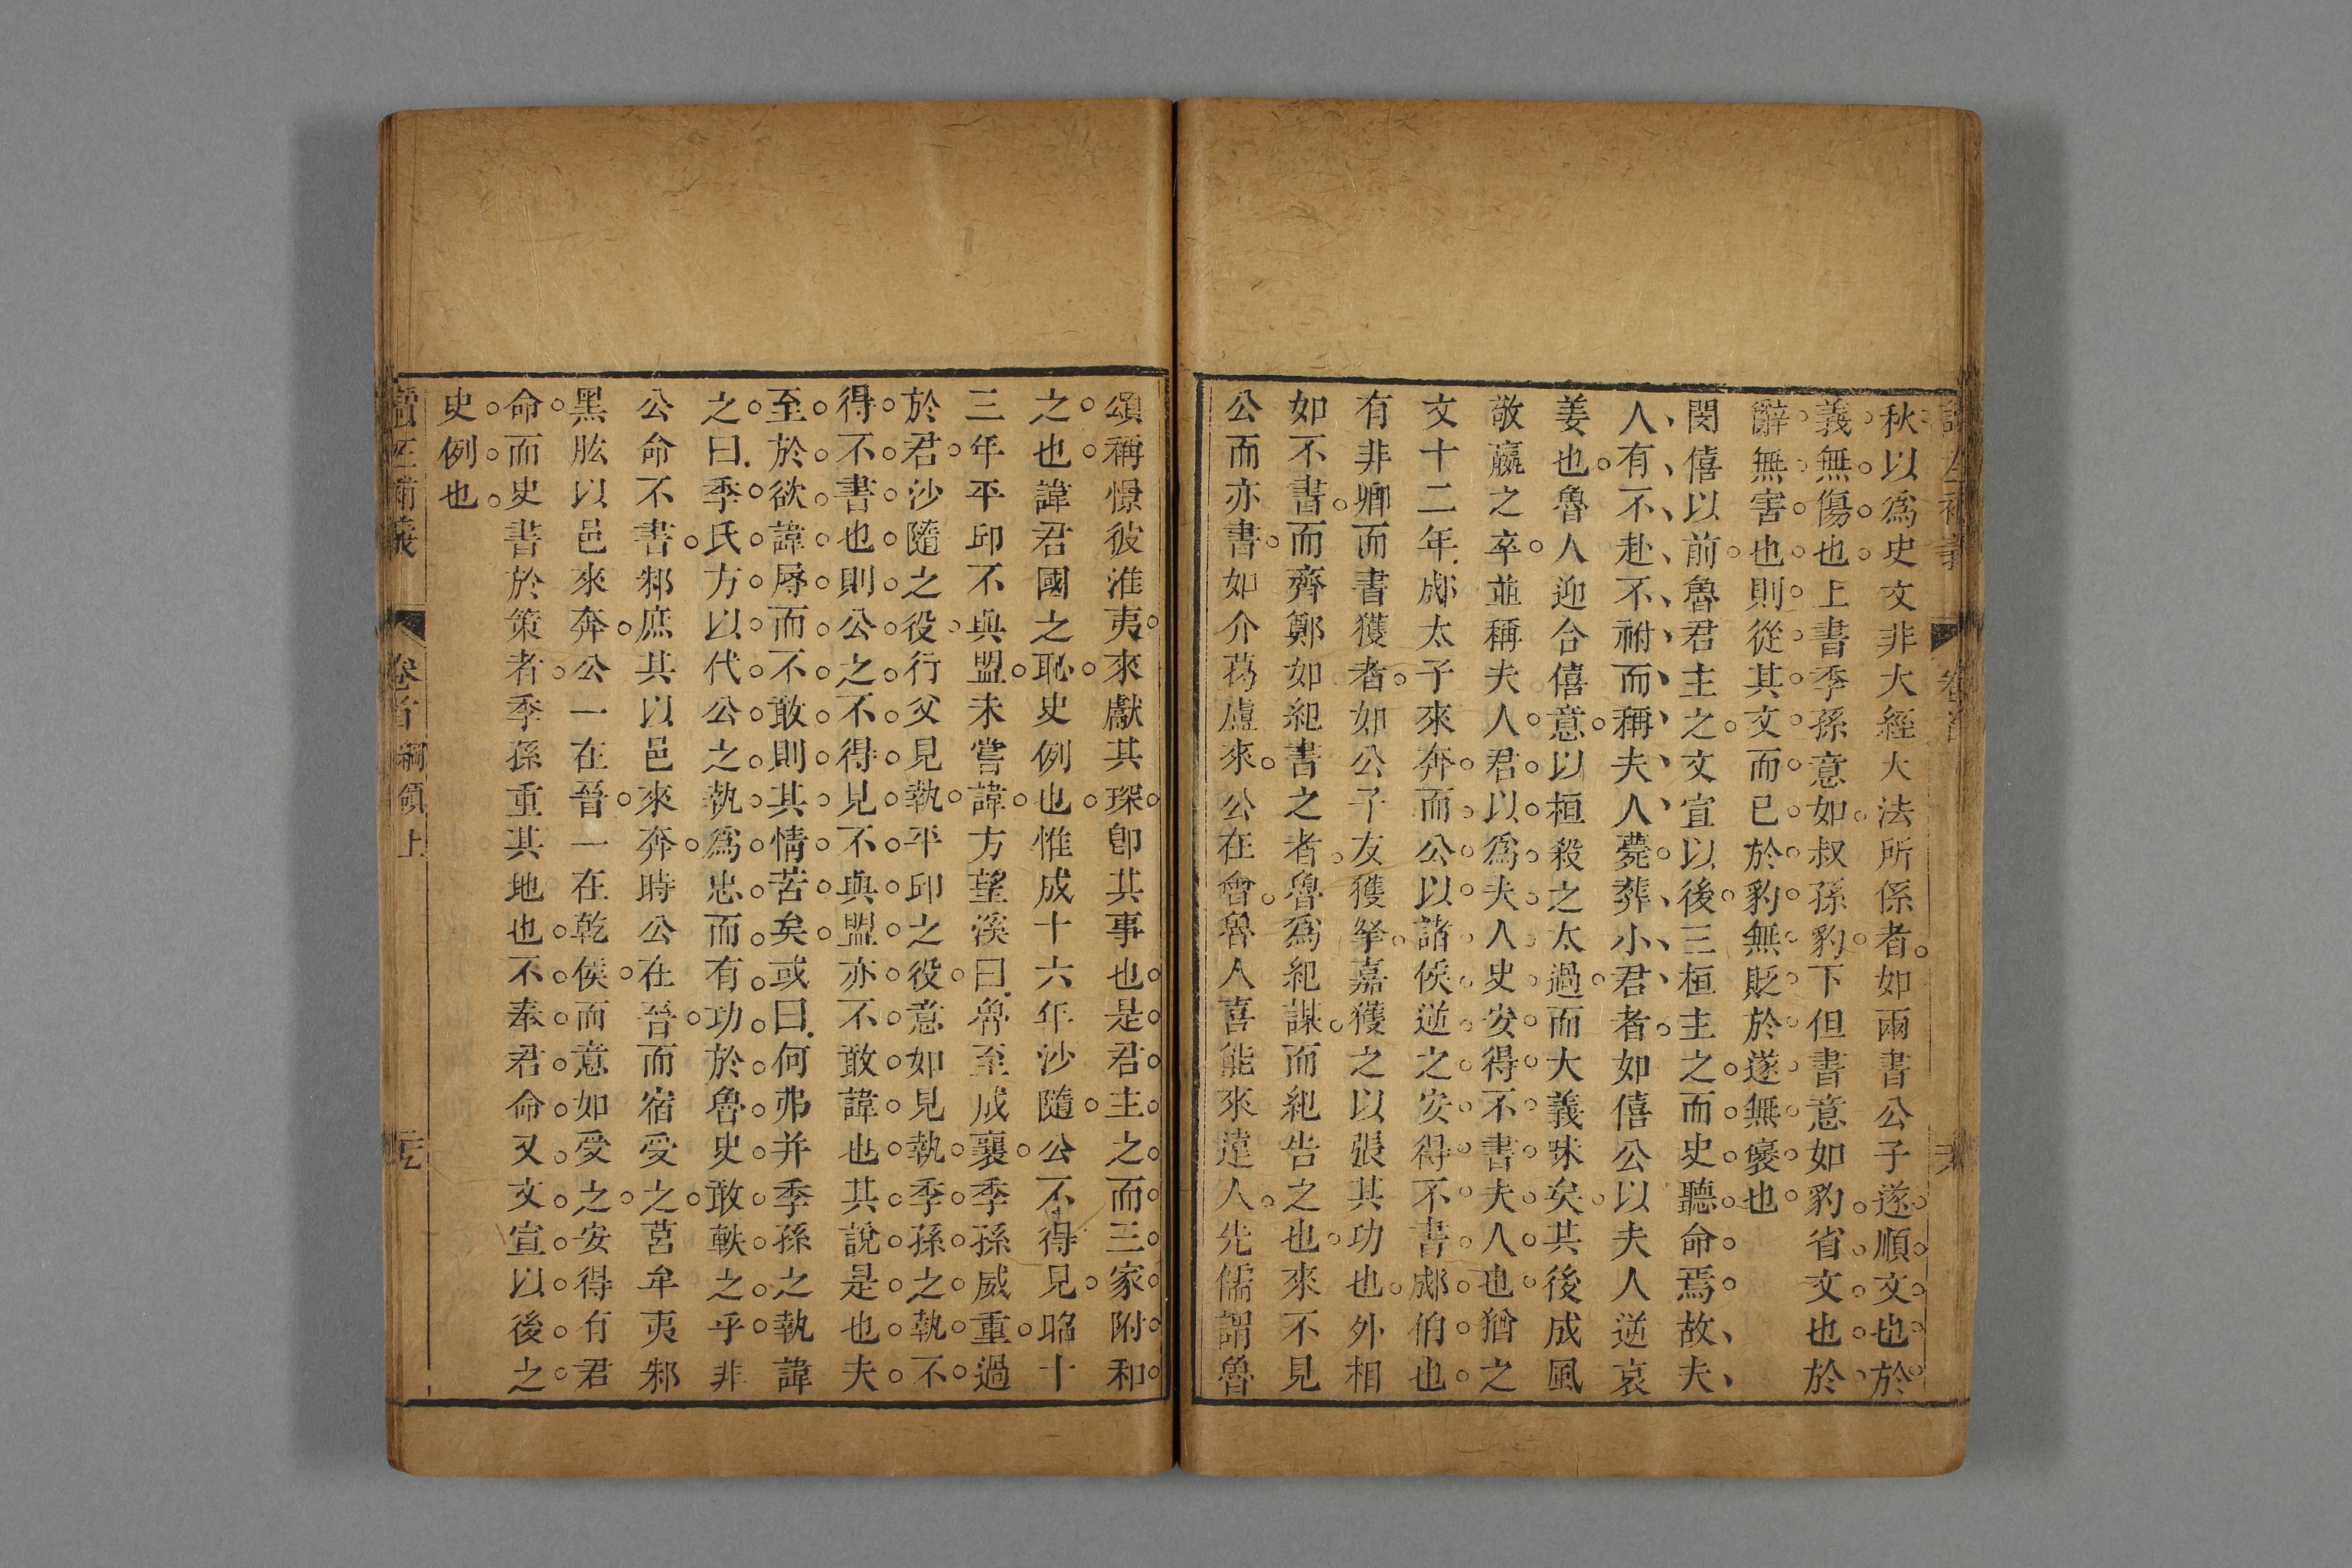 秋以爲史文非大經大法所係者如兩書公子遂順文也於
義無傷也上書季孫意如叔孫豹下但書意如豹省文也於
辭無害也則從其文而已於豹無貶於遂無褒也
閔僖以前魯君主之文宣以後三桓主之而史聽命焉故夫
人有不赴不祔而稱夫人薨葬小君者如僖公以夫人逆哀
姜也魯人迎合僖意以桓殺之太過而大義昧矣其後成風
敬嬴之卒並稱夫人君以爲夫人史安得不書夫人也猶之
文十二年郕太子來奔而公以諸侯逆之安得不書郕伯也
有非卿而書獲者如公子友獲挐嘉獲之以張其功也外相
如不書而齊鄭如紀書之者魯爲紀謀而紀告之也來不見
公而亦書如介葛盧來公在會魯人喜能來遠人先儒謂魯
頌稱憬彼淮夷來獻其琛卽其事也是君主之而三家附和
之也諱君國之恥史例也惟成十六年沙隨公不得見昭十
三年平邱不與盟未嘗諱方望溪曰魯至成襄季孫威重過
於君沙隨之役行父見執平邱之役意如見執季孫之執不
得不書也則公之不得見不與盟亦不敢諱也其說是也夫
至於欲諱辱而不敢則其情苦矣或曰何弗并季孫之執諱
之曰季氏方以代公之執爲忠而有功於魯史敢軼之乎非
公命不書邾庶其以邑來奔時公在晉而宿受之莒牟夷邾
黑肱以邑來奔公一在晉一在乾侯而意如受之安得有君
命而史書於策者季孫重其地也不奉君命又文宣以後之
史例也
讀左補義 卷首 綱領上